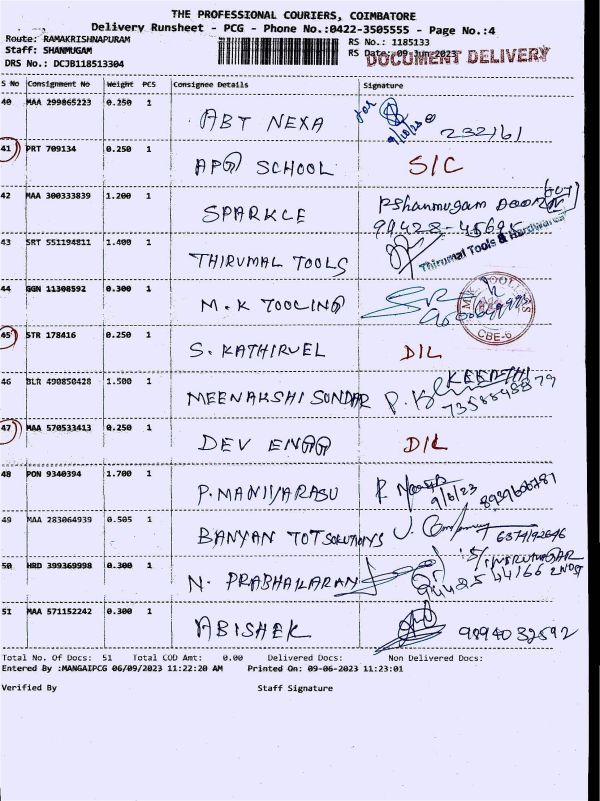 THE PROFESSIONAL COURIERS, COIMBATORE
Delivery Runsheet - PCG - Phone No.:0422-3505555 - Page No.:4
Route: RAMAKRISHNAPURAM RS No.: 1185133
Staff: SHANMUGAM RS Date: 09-Jun-2023 DOCUMENT DELIVERY
DRS No.: DCJB118513304
S No Consignment No Weight PCS Consignee Details Signature
40 MAA 299865223 0.250 1 ABT NEXA 232161
41 PRT 709134 0.250 1 APG SCHOOL S/C
42 MAA 300333839 1.200 1 SPARKLE Pshanmugam
99428-45695
43 SRT 551194811 1.400 1 THIRUMAL TOOLS Thirumal Tools & Hardwares
44 GGN 11308592 0.300 1 M.K TOOLING CBE-6
45 STR 178416 0.250 1 S. KATHIRVEL D/L
46 BLR 490850428 1.500 1 MEENAKSHI SUNDAR KEERTHI
47 MAA 570533413 0.250 1 DEV ENGG D/L
48 PON 9340394 1.700 1 P. MANIYARASU 9/6/23
49 MAA 283064939 0.505 1 BANYAN TOT SOLUTIONS
50 HRD 399369998 0.300 1 N. PRABHAKARAN 94425 44166
51 MAA 571152242 0.300 1 ABISHEK 9894032592
Total No. Of Docs: 51 Total COD Amt: 0.00 Delivered Docs: Non Delivered Docs:
Entered By :MANGAIPCG 06/09/2023 11:22:20 AM Printed On: 09-06-2023 11:23:01
Verified By Staff Signature